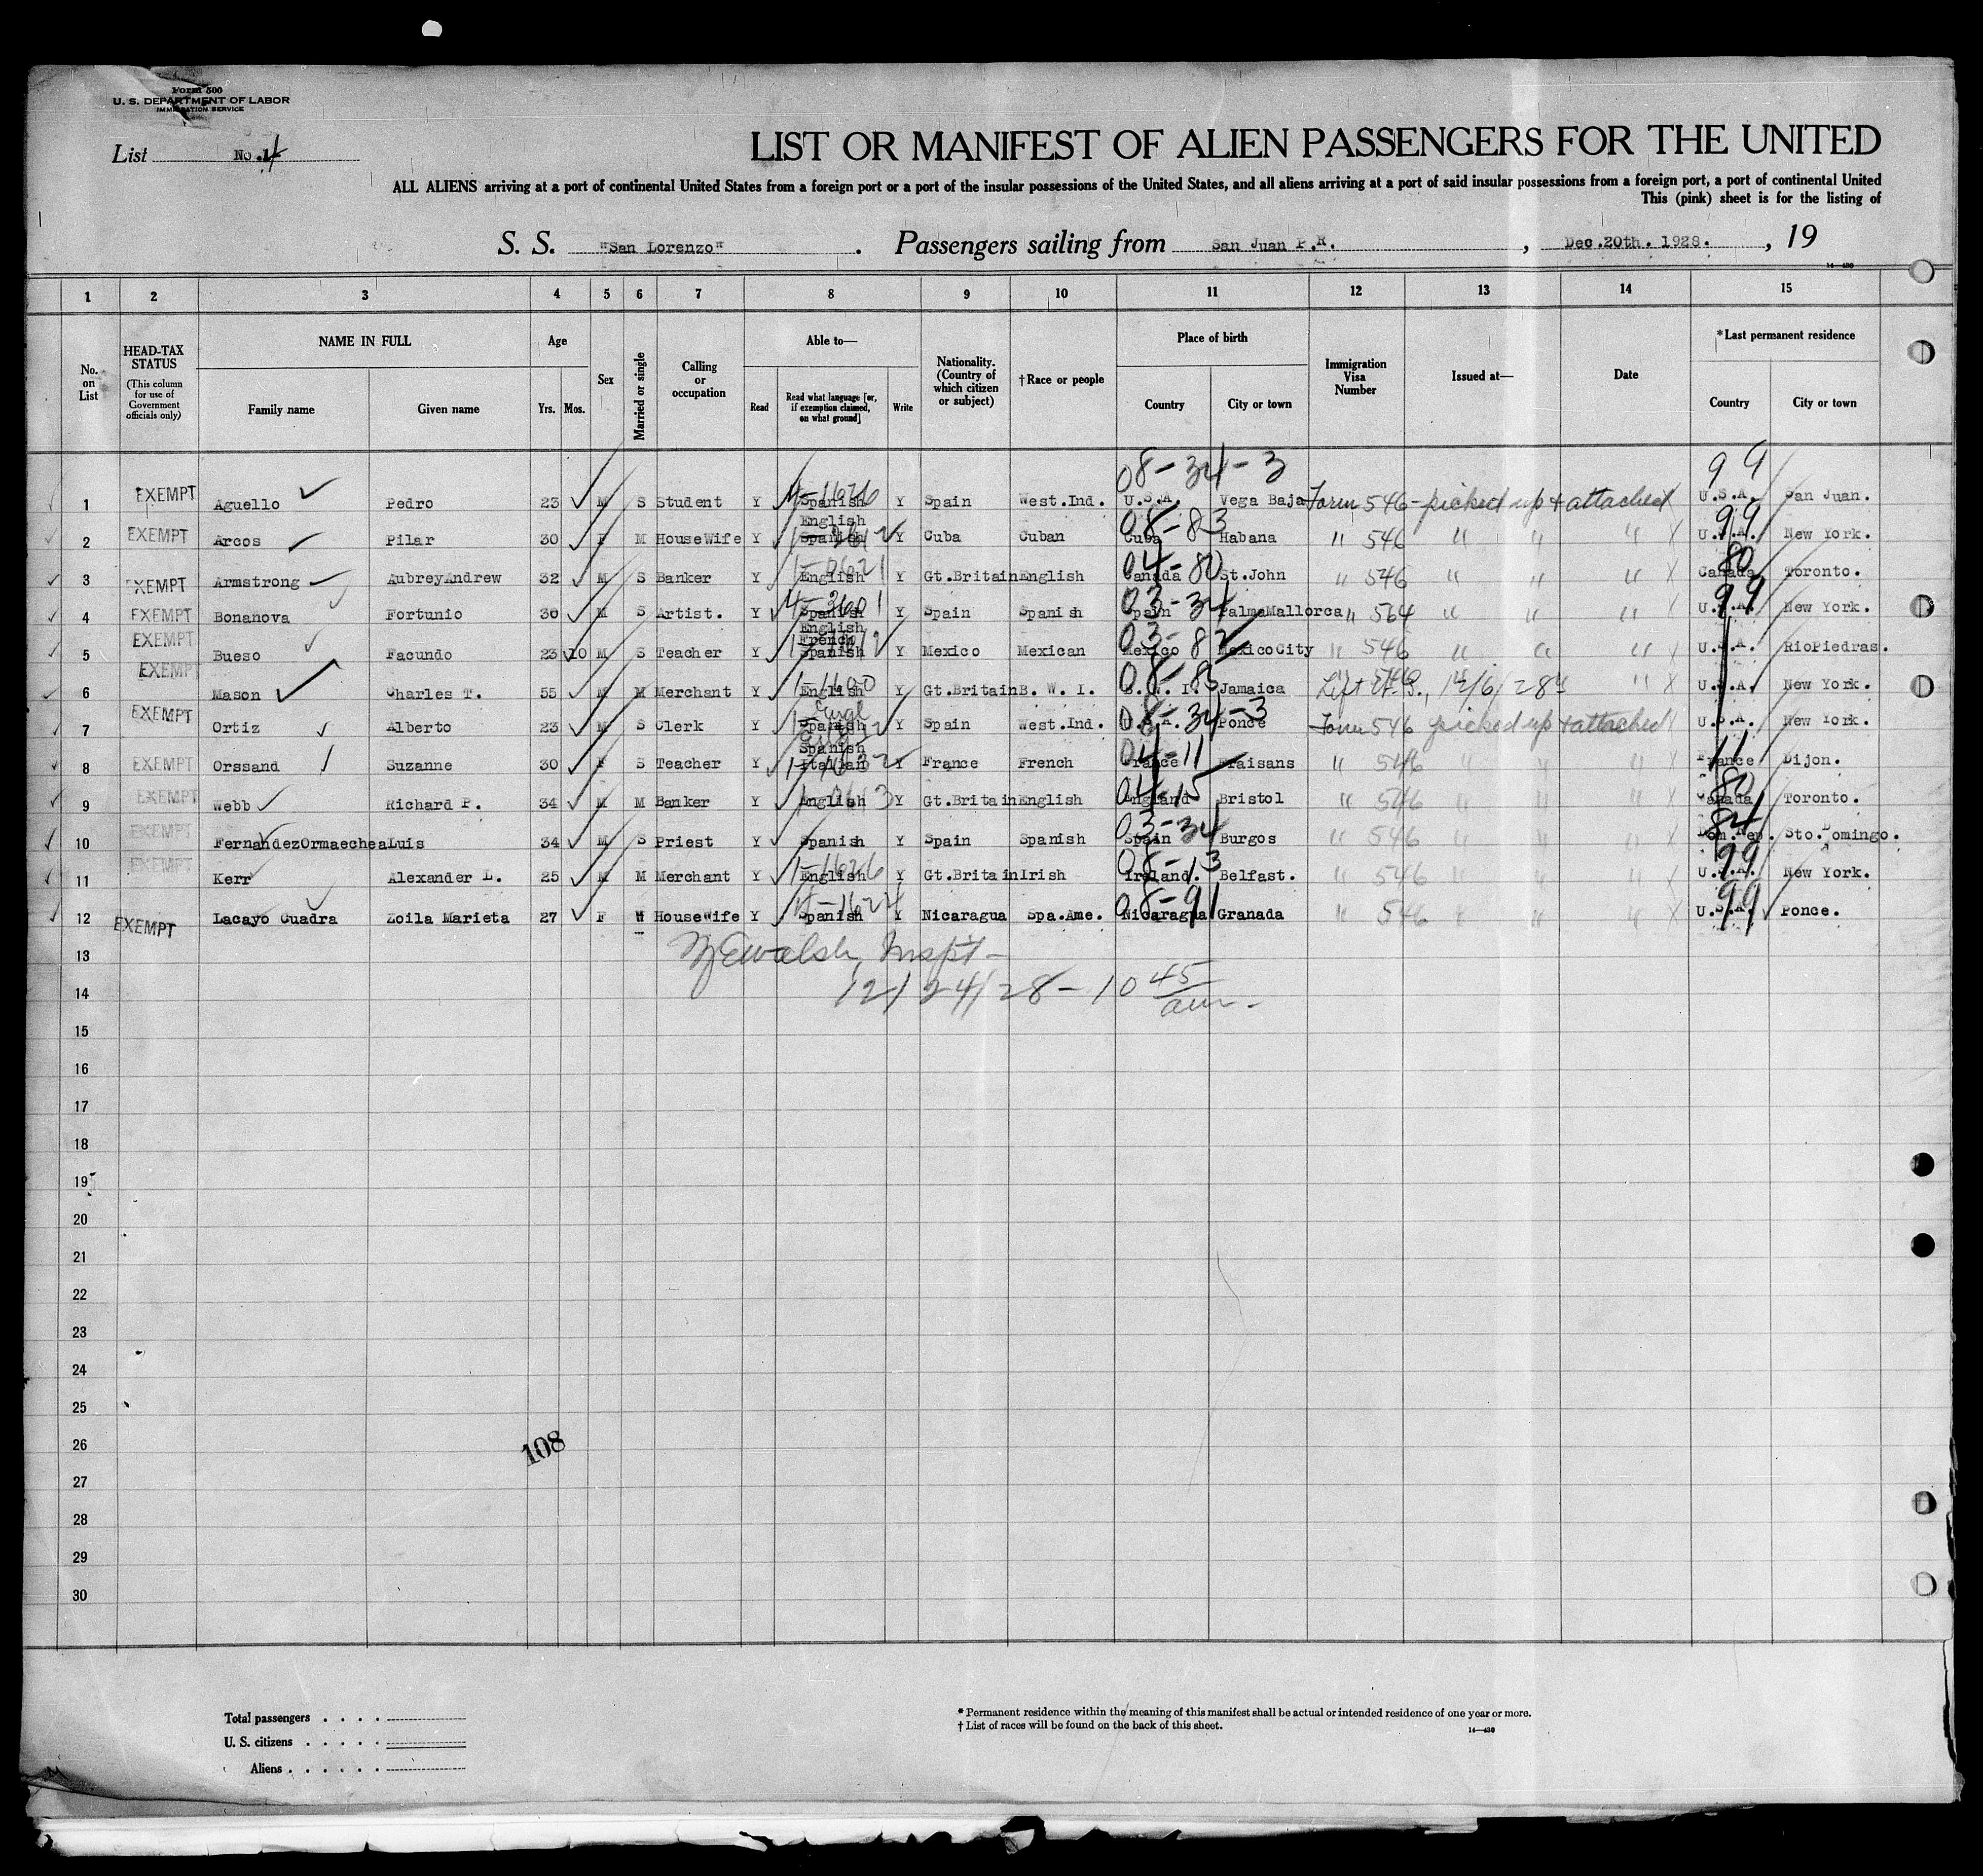 Form 500
U. S. DEPARTMENT OF LABOR
IMMIGRATION SERVICE
List No. 4
LIST OR MANIFEST OF ALIEN PASSENGERS FOR THE UNITED
ALL ALIENS arriving at a port of continental United States from a foreign port or a port of the insular possessions of the United States, and all aliens arriving at a port of said insular possessions from a foreign port, a port of continental United
This (pink) sheet is for the listing of
S. S. "San Lorenzo" . Passengers sailing from San Juan P.R. , Dec.20th. 1928. , 19
14—430
1 2 3 4 5 6 7 8 9 10 11 12 13 14 15
No. on List
HEAD-TAX STATUS
(This column for use of Government officials only)
NAME IN FULL
Family name Given name
Age
Yrs. Mos.
Sex
Married or single
Calling or occupation
Able to—
Read
Read what language [or, if exemption claimed, on what ground]
Write
Nationality. (Country of which citizen or subject)
†Race or people
Place of birth
Country City or town
Immigration Visa Number
Issued at—
Date
*Last permanent residence
Country City or town
08-34-3 99
1 EXEMPT Aguello Pedro 23 M S Student Y Spanish Y Spain West.Ind. U.S.A. Vega Baja Form 546 - picked up + attached U.S.A. San Juan.
2 EXEMPT Arcos Pilar 30 F M HouseWife Y English Spanish Y Cuba Cuban Cuba 08-83 Habana " 546 " " " U.S.A. 99 New York.
3 EXEMPT Armstrong AubreyAndrew 32 M S Banker Y English Y Gt.Britain English Canada 04-80 St.John " 546 " " " Canada 80 Toronto.
4 EXEMPT Bonanova Fortunio 30 M S Artist. Y Spanish Y Spain Spanish Spain 03-34 PalmaMallorca " 564 " " " U.S.A. 99 New York.
5 EXEMPT Bueso Facundo 23 10 M S Teacher Y English French Spanish Y Mexico Mexican Mexico 03-82 MexicoCity " 546 " " " U.S.A. RioPiedras.
6 EXEMPT Mason Charles T. 55 M M Merchant Y English Y Gt.Britain B. W. I. B. W. I. Jamaica Left U.S., " U.S.A. New York.
7 EXEMPT Ortiz Alberto 23 M S Clerk Y Spanish Engl Y Spain West.Ind. U.S.A. 08-34-3 Ponce Form 546 picked up + attached U.S.A. New York.
8 EXEMPT Orssand Suzanne 30 F S Teacher Y Spanish Italian Y France French France 04-11 Fraisans " 546 " " " France 11 Dijon.
9 EXEMPT Webb Richard P. 34 M M Banker Y English Y Gt.Britain English England 04-15 Bristol " 546 " " " Canada 80 Toronto.
10 EXEMPT FernandezOrmaechea Luis 34 M S Priest Y Spanish Y Spain Spanish Spain 03-34 Burgos " 546 " " " Dom.Rep. 84 Sto.Domingo.
11 EXEMPT Kerr Alexander L. 25 M M Merchant Y English Y Gt.Britain Irish Ireland. 08-13 Belfast. " 546 " " " U.S.A. 99 New York.
12 EXEMPT Lacayo Cuadra Zoila Marieta 27 F M HouseWife Y Spanish Y Nicaragua Spa.Ame. Nicaragua 08-91 Granada " 546 " " " U.S.A. 99 Ponce.
13 Walsh, Inspt -
14 12/24/28 - 10 45 am -
15
16
17
18
19
20
21
22
23
24
25
26
108
27
28
29
30
Total passengers . . . .
U. S. citizens . . . . .
Aliens . . . . . .
* Permanent residence within the meaning of this manifest shall be actual or intended residence of one year or more.
† List of races will be found on the back of this sheet. 14—430